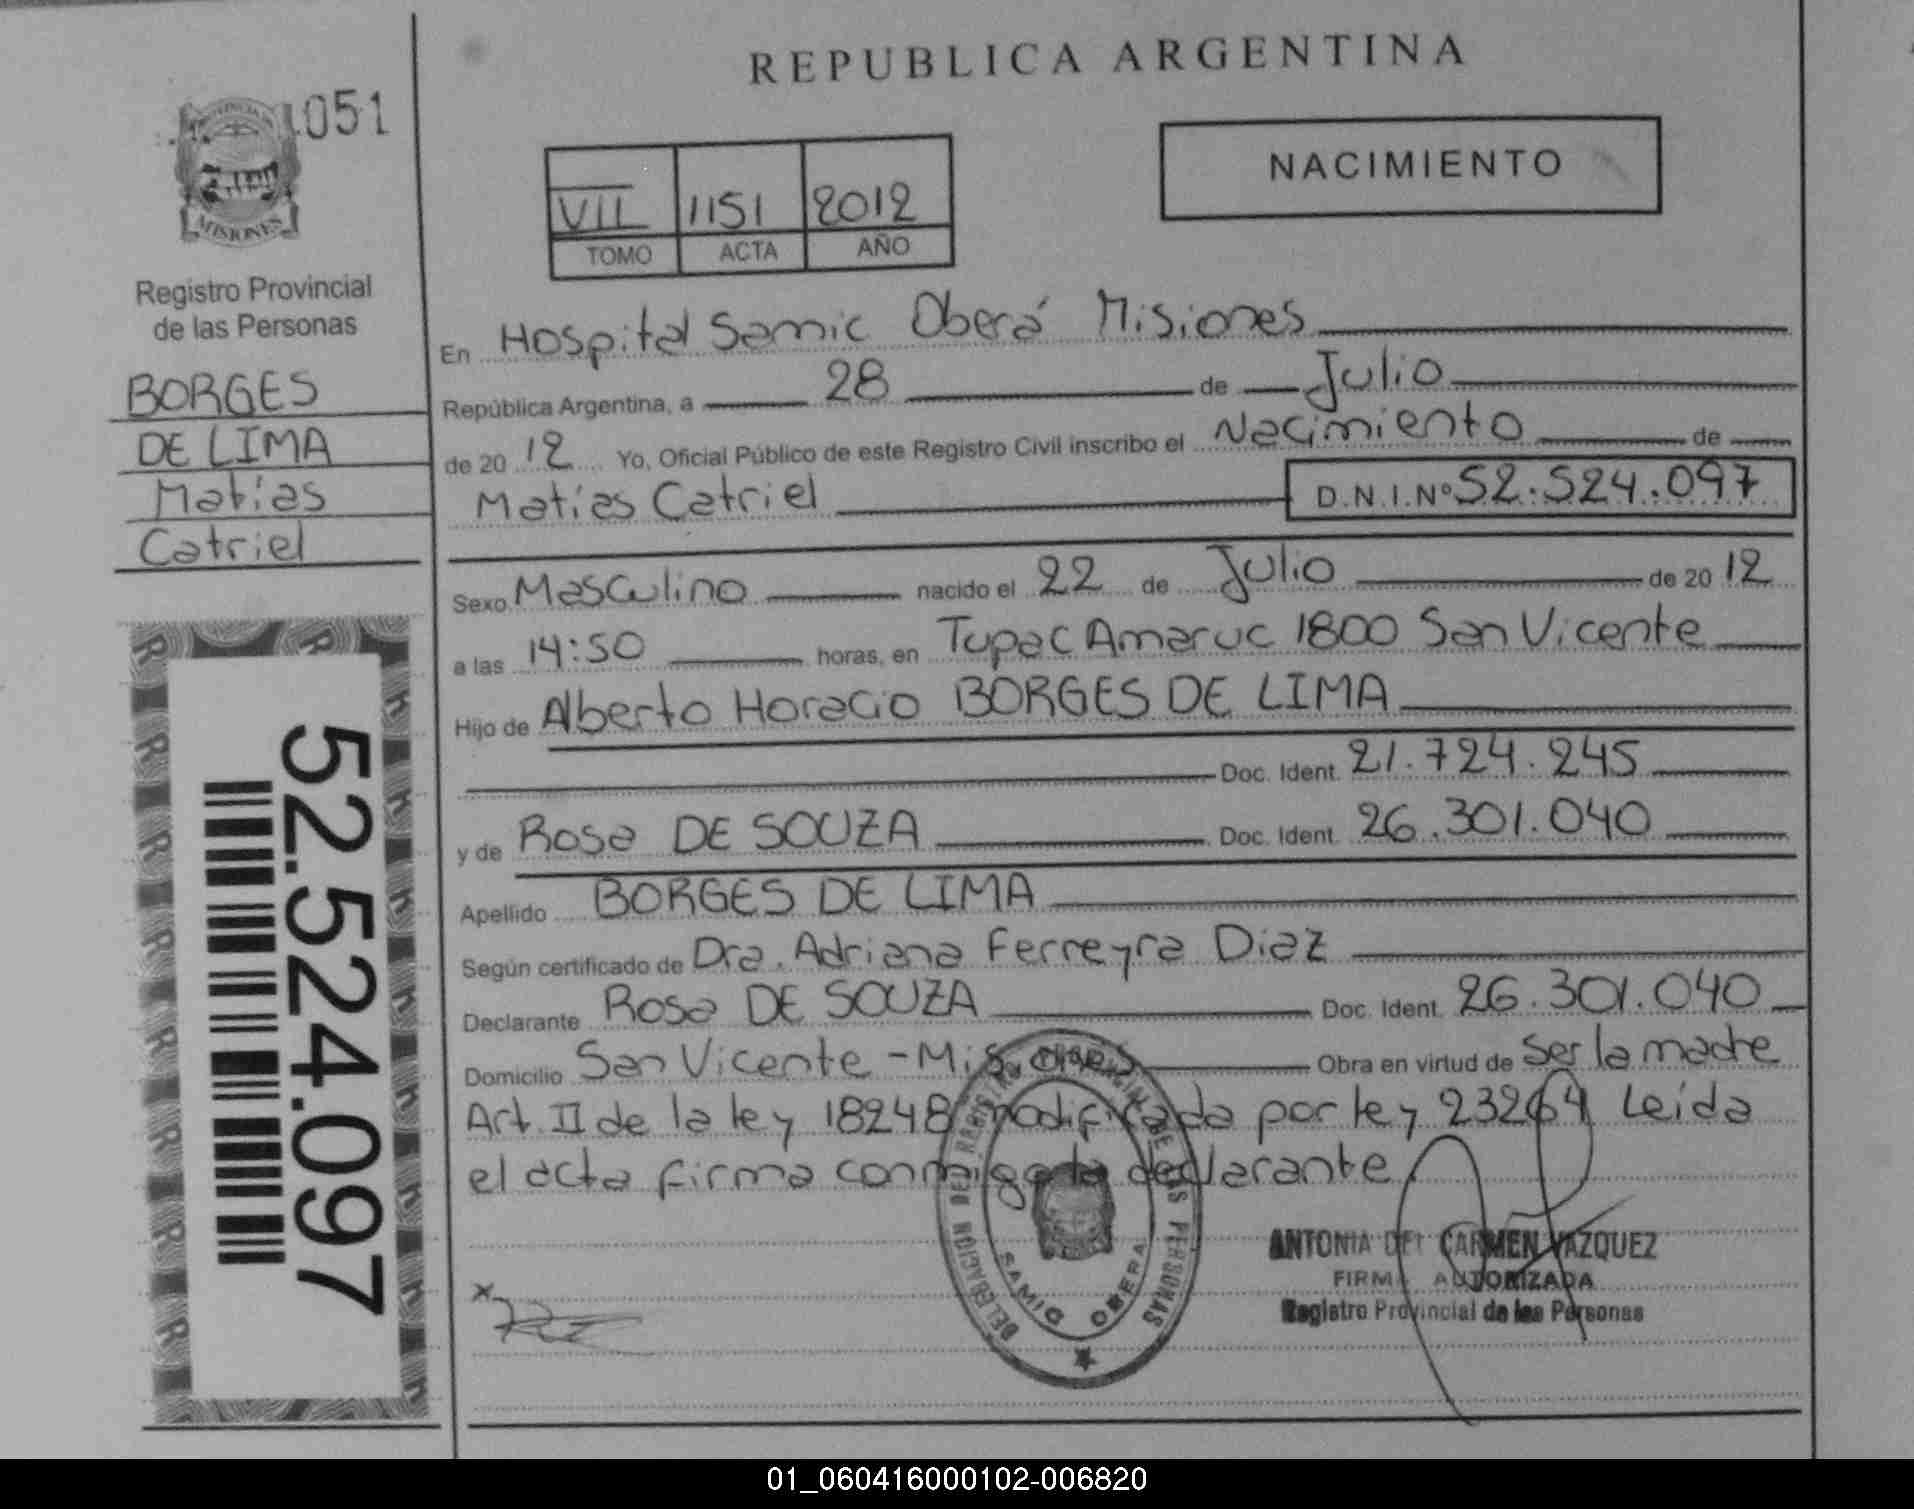 REPUBLICA ARGENTINA
051
PROVINCIA DE
MISIONES
NACIMIENTO
VII 1151 2012
TOMO ACTA AÑO
Registro Provincial
de las Personas
BORGES
DE LIMA
Matías
Catriel
En Hospital Samic Oberá Misiones
República Argentina, a 28 de Julio
de 2012 Yo, Oficial Público de este Registro Civil inscribo el Nacimiento de
Matías Catriel D.N.I.Nº 52.524.097
Sexo Masculino nacido el 22 de Julio de 2012
a las 14:50 horas, en Tupac Amaruc 1800 San Vicente
Hijo de Alberto Horacio BORGES DE LIMA
Doc. Ident. 21.724.245
y de Rosa DE SOUZA Doc. Ident. 26.301.040
Apellido BORGES DE LIMA
Según certificado de Dra. Adriana Ferreyra Diaz
Declarante Rosa DE SOUZA Doc. Ident. 26.301.040
Domicilio San Vicente - Misiones Obra en virtud de Ser la madre
Art. II de la ley 18248 modificada por ley 23264 Leída
el acta firma conmigo la declarante
52.524.097
DELEGACION DEL REGISTRO PROVINCIAL DE LAS PERSONAS
SAMIC OBERA
ANTONIA DEL CARMEN VAZQUEZ
FIRMA AUTORIZADA
Registro Provincial de las Personas
x
01_060416000102-006820